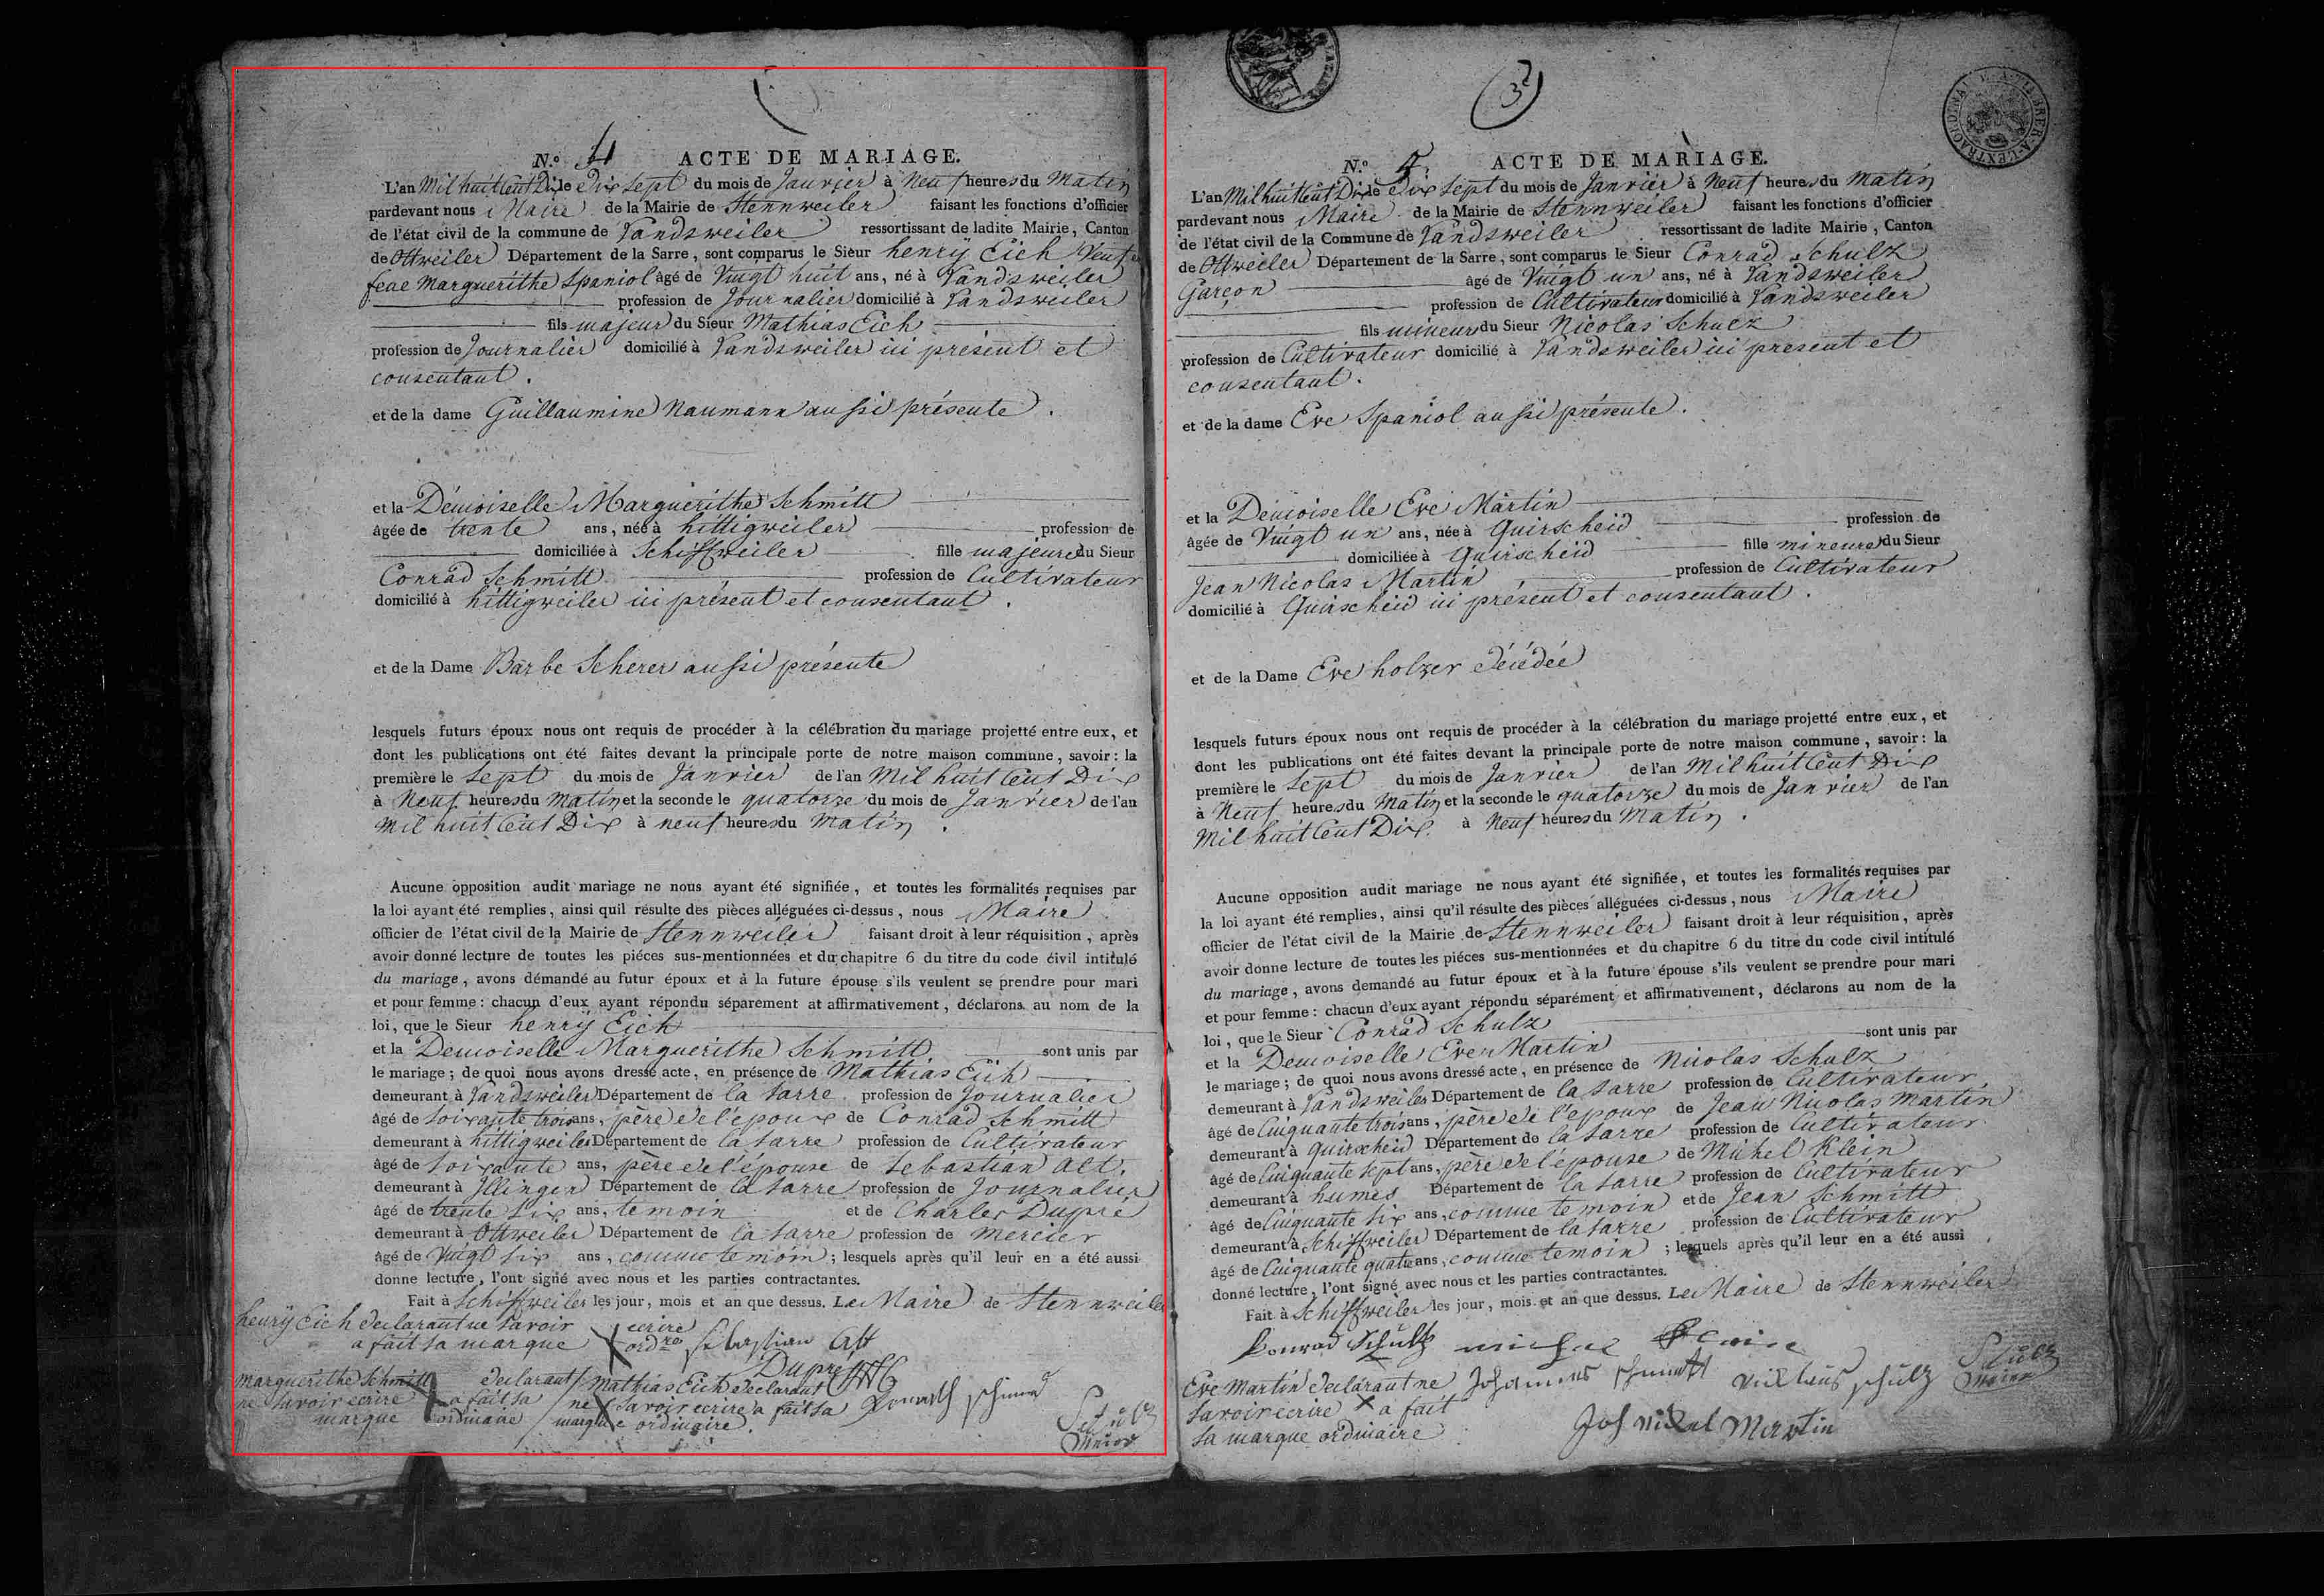 N.º 4 ACTE DE MARIAGE.
L'an Mil huit Cent Dix le dix sept du mois de Janvier à Neuf heures du Matin
pardevant nous Maire de la Mairie de Stennweiler faisant les fonctions d'officier
de l'état civil de la commune de Landsweiler ressortissant de ladite Mairie, Canton
de Ottweiler Département de la Sarre, sont comparus le Sieur henrÿ Eich Veuf de
feue Marguerithe Spaniol âgé de Vingt huit ans, né à Landsweiler
profession de Journalier domicilié à Landsweiler
fils majeur du Sieur Mathias Eich
profession de Journalier domicilié à Landsweiler ici présent et
consentant.
et de la dame Guillaumine Naumann aussi présente.
et la Demoiselle Marguerithe Schmitt
âgée de trente ans, née à hittigweiler profession de
domiciliée à Schiffweiler fille majeure du Sieur
Conrad Schmitt profession de Cultivateur
domicilié à hittigweiler ici présent et consentant.
et de la Dame Barbe Scherer aussi présente
lesquels futurs époux nous ont requis de procéder à la célébration du mariage projetté entre eux, et
dont les publications ont été faites devant la principale porte de notre maison commune, savoir: la
première le Sept du mois de Janvier de l'an Mil huit Cent Dix
à Neuf heures du Matin et la seconde le quatorze du mois de Janvier de l'an
Mil huit Cent Dix à neuf heures du Matin.
Aucune opposition audit mariage ne nous ayant été signifiée, et toutes les formalités requises par
la loi ayant été remplies, ainsi quil résulte des pièces alléguées ci-dessus, nous Maire
officier de l'état civil de la Mairie de Stennweiler faisant droit à leur réquisition, après
avoir donné lecture de toutes les piéces sus-mentionnées et du chapitre 6 du titre du code civil intitulé
du mariage, avons démandé au futur époux et à la future épouse s'ils veulent se prendre pour mari
et pour femme: chacun d'eux ayant répondu séparement at affirmativement, déclarons au nom de la
loi, que le Sieur henrÿ Eich
et la Demoiselle Marguerithe Schmitt sont unis par
le mariage; de quoi nous avons dressé acte, en présence de Mathias Eich
demeurant à Landsweiler Département de la Sarre profession de Journalier
âgé de Soixante trois ans, père de l'epoux de Conrad Schmitt
demeurant à hittigweiler Département de la Sarre profession de Cultivateur
âgé de Soixante ans, père de l'épouse de Sebastian Alt.
demeurant à Illingen Département de la Sarre profession de Journalier
âgé de trente Six ans, temoin et de Charles Dupré
demeurant à Ottweiler Département de la Sarre profession de Mercier
âgé de Vingt Six ans, comme temoin; lesquels après qu'il leur en a été aussi
donne lecture, l'ont signé avec nous et les parties contractantes.
Fait à Schiffweiler les jour, mois et an que dessus. Le Maire de Stennweiler
henrÿ Eich declarant ne Savoir ecrire
a fait sa marque ord.re Sebastian Alt
Dupré
Marguerithe Schmitt declarant
ne Savoir ecrire a fait sa
marque ordinaire
Mathias Eich declarant
ne Savoir ecrire a fait sa
marque ordinaire.
Schulz
Meier
3
N.º 5. ACTE DE MARIAGE.
L'an Mil huit Cent Dix le dix Sept du mois de Janvier à Neuf heures du Matin
pardevant nous Maire de la Mairie de Stennweiler faisant les fonctions d'officier
de l'état civil de la Commune de Landsweiler ressortissant de ladite Mairie, Canton
de Ottweiler Département de la Sarre, sont comparus le Sieur Conrad Schulz
Garçon âgé de Vingt un ans, né à Landsweiler
profession de Cultivateur domicilié à Landsweiler
fils mineur du Sieur Nicolas Schulz
profession de Cultivateur domicilié à Landsweiler ici present et
consentant.
et de la dame Eve Spaniol aussi présente.
et la Demoiselle Eve Martin
âgée de Vingt un ans, née à Quirscheid profession de
domiciliée à Quirscheid fille mineure du Sieur
Jean Nicolas Martin profession de Cultivateur
domicilié à Quirscheid ici présent et consentant.
et de la Dame Eve holzer décédée
lesquels futurs époux nous ont requis de procéder à la célébration du mariage projetté entre eux, et
dont les publications ont été faites devant la principale porte de notre maison commune, savoir: la
première le Sept du mois de Janvier de l'an Mil huit Cent Dix
à Neuf heures du Matin et la seconde le quatorze du mois de Janvier de l'an
Mil huit Cent Dix. à Neuf heures du Matin.
Aucune opposition audit mariage ne nous ayant été signifiée, et toutes les formalités requises par
la loi ayant été remplies, ainsi qu'il résulte des pièces alléguées ci-dessus, nous Maire
officier de l'état civil de la Mairie de Stennweiler faisant droit à leur réquisition, après
avoir donne lecture de toutes les piéces sus-mentionnées et du chapitre 6 du titre du code civil intitulé
du mariage, avons demandé au futur époux et à la future épouse s'ils veulent se prendre pour mari
et pour femme: chacun d'eux ayant répondu séparément et affirmativement, déclarons au nom de la
loi, que le Sieur Conrad Schulz
et la Demoiselle Eve Martin sont unis par
le mariage; de quoi nous avons dressé acte, en présence de Nicolas Schulz
demeurant à Landsweiler Département de la Sarre profession de Cultivateur
âgé de Cinquante trois ans, père de l'epoux de Jean Nicolas Martin
demeurant à Quirscheid Département de la Sarre profession de Cultivateur
âgé de Cinquante sept ans, père de l'épouse de Michel Klein
demeurant à humes Département de la Sarre profession de Cultivateur
âgé de Cinquante Six ans, comme temoin et de Jean Schmitt
demeurant à Schiffweiler Département de la Sarre profession de Cultivateur
âgé de Cinquante quatre ans, comme temoin; lesquels après qu'il leur en a été aussi
donné lecture, l'ont signé avec nous et les parties contractantes.
Fait à Schiffweiler les jour, mois et an que dessus. Le Maire de Stennweiler
Konrad Schultz
Eve Martin declarant ne
Savoir ecrire a fait
sa marque ordinaire
Johannes Schmitt
Nicklaus Schulz
Schulz
Meier
Joh Nickel Martin